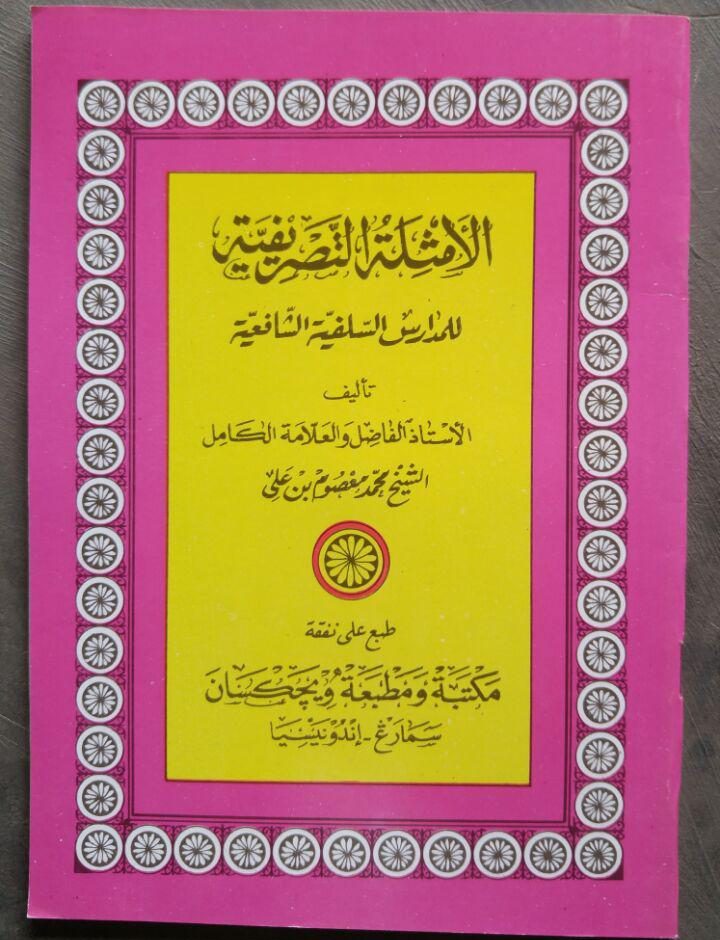 الأَمْثِلَةُ التَّصْرِيفِيَّة
للمدارس السّلفيّة الشّافعيّة
تأليف
الأستاذ الفاضل والعلّامة الكامل
الشيخ محمّد معصوم بن علي
طبع على نفقة
مَكتَبَة وَمَطبَعَة
سَمَارَغْ - إِنْدُونِيْسِيَا